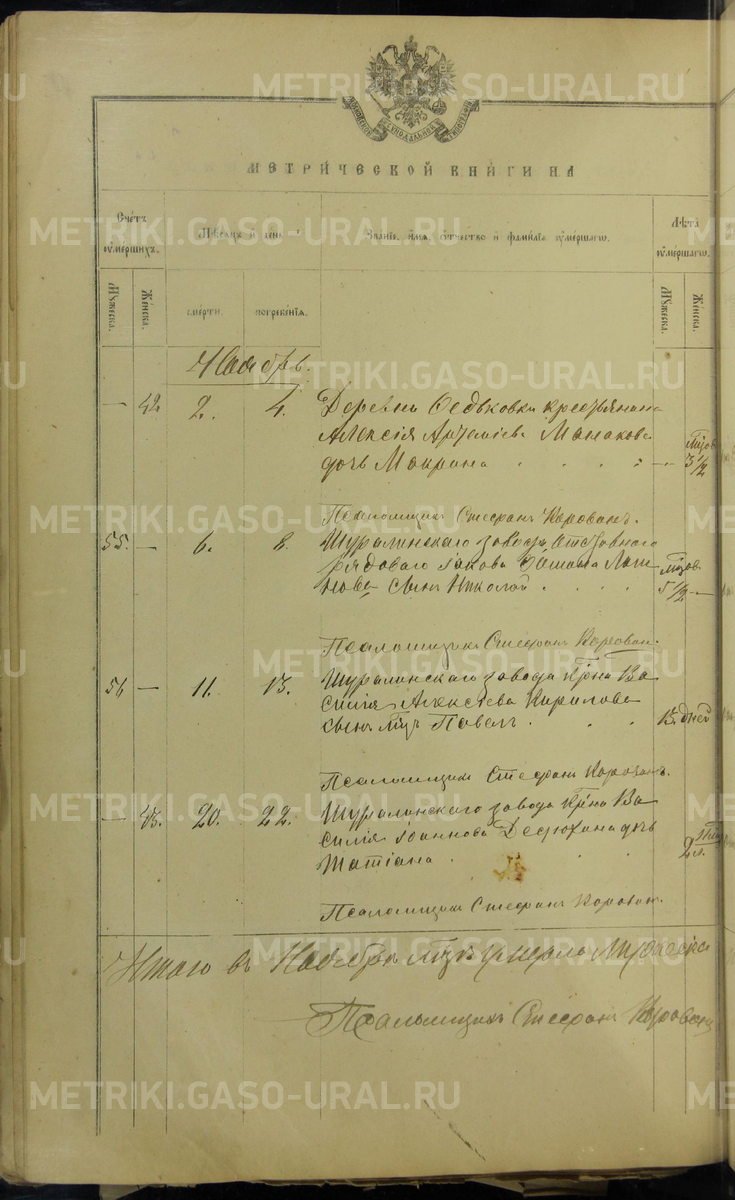 МОСКОВСКОЙ СѴНОДАЛЬНОЙ ТИПОГРАФІИ
МЕТРИ́ЧЕСКОЙ КНИ́ГИ НА
Счетъ ᲂу҆ме́ршихъ.
Мѣсяцъ и день
Званіе, имя, отчество и фамилія ᲂу҆ме́ршагѡ.
Лѣта ᲂу҆ме́ршагѡ.
Мꙋжеска.
Женска.
смерти.
погребенія.
Мꙋжеска.
Женска.
Ноябрь.
— 42 2. 4. Деревни Федьковки крестьянина
Алексія Артеміева Манакова
дочь Макрина — 3½
Псаломщикъ Стефанъ Корован
55. — 6. 8. Шуралинскаго завода Отставнаго
рядоваго Іакова
сынъ Николай 5½ —
Псаломщикъ Стефанъ Корован
56 — 11. 13. Шуралинскаго завода Крна Ва
силія Алексіева Кирилова
сынъ Павелъ 15 дней
Псаломщикъ Стефанъ Корован
— 43. 20. 22. Шуралинскаго завода Крна Ва
силія Іоаннова Десюкина дочь
Татіана 2
Псаломщикъ Стефанъ Корован
Итого въ Ноябрѣ умерло
Псаломщикъ Стефанъ Корован
METRIKI.GASO-URAL.RU